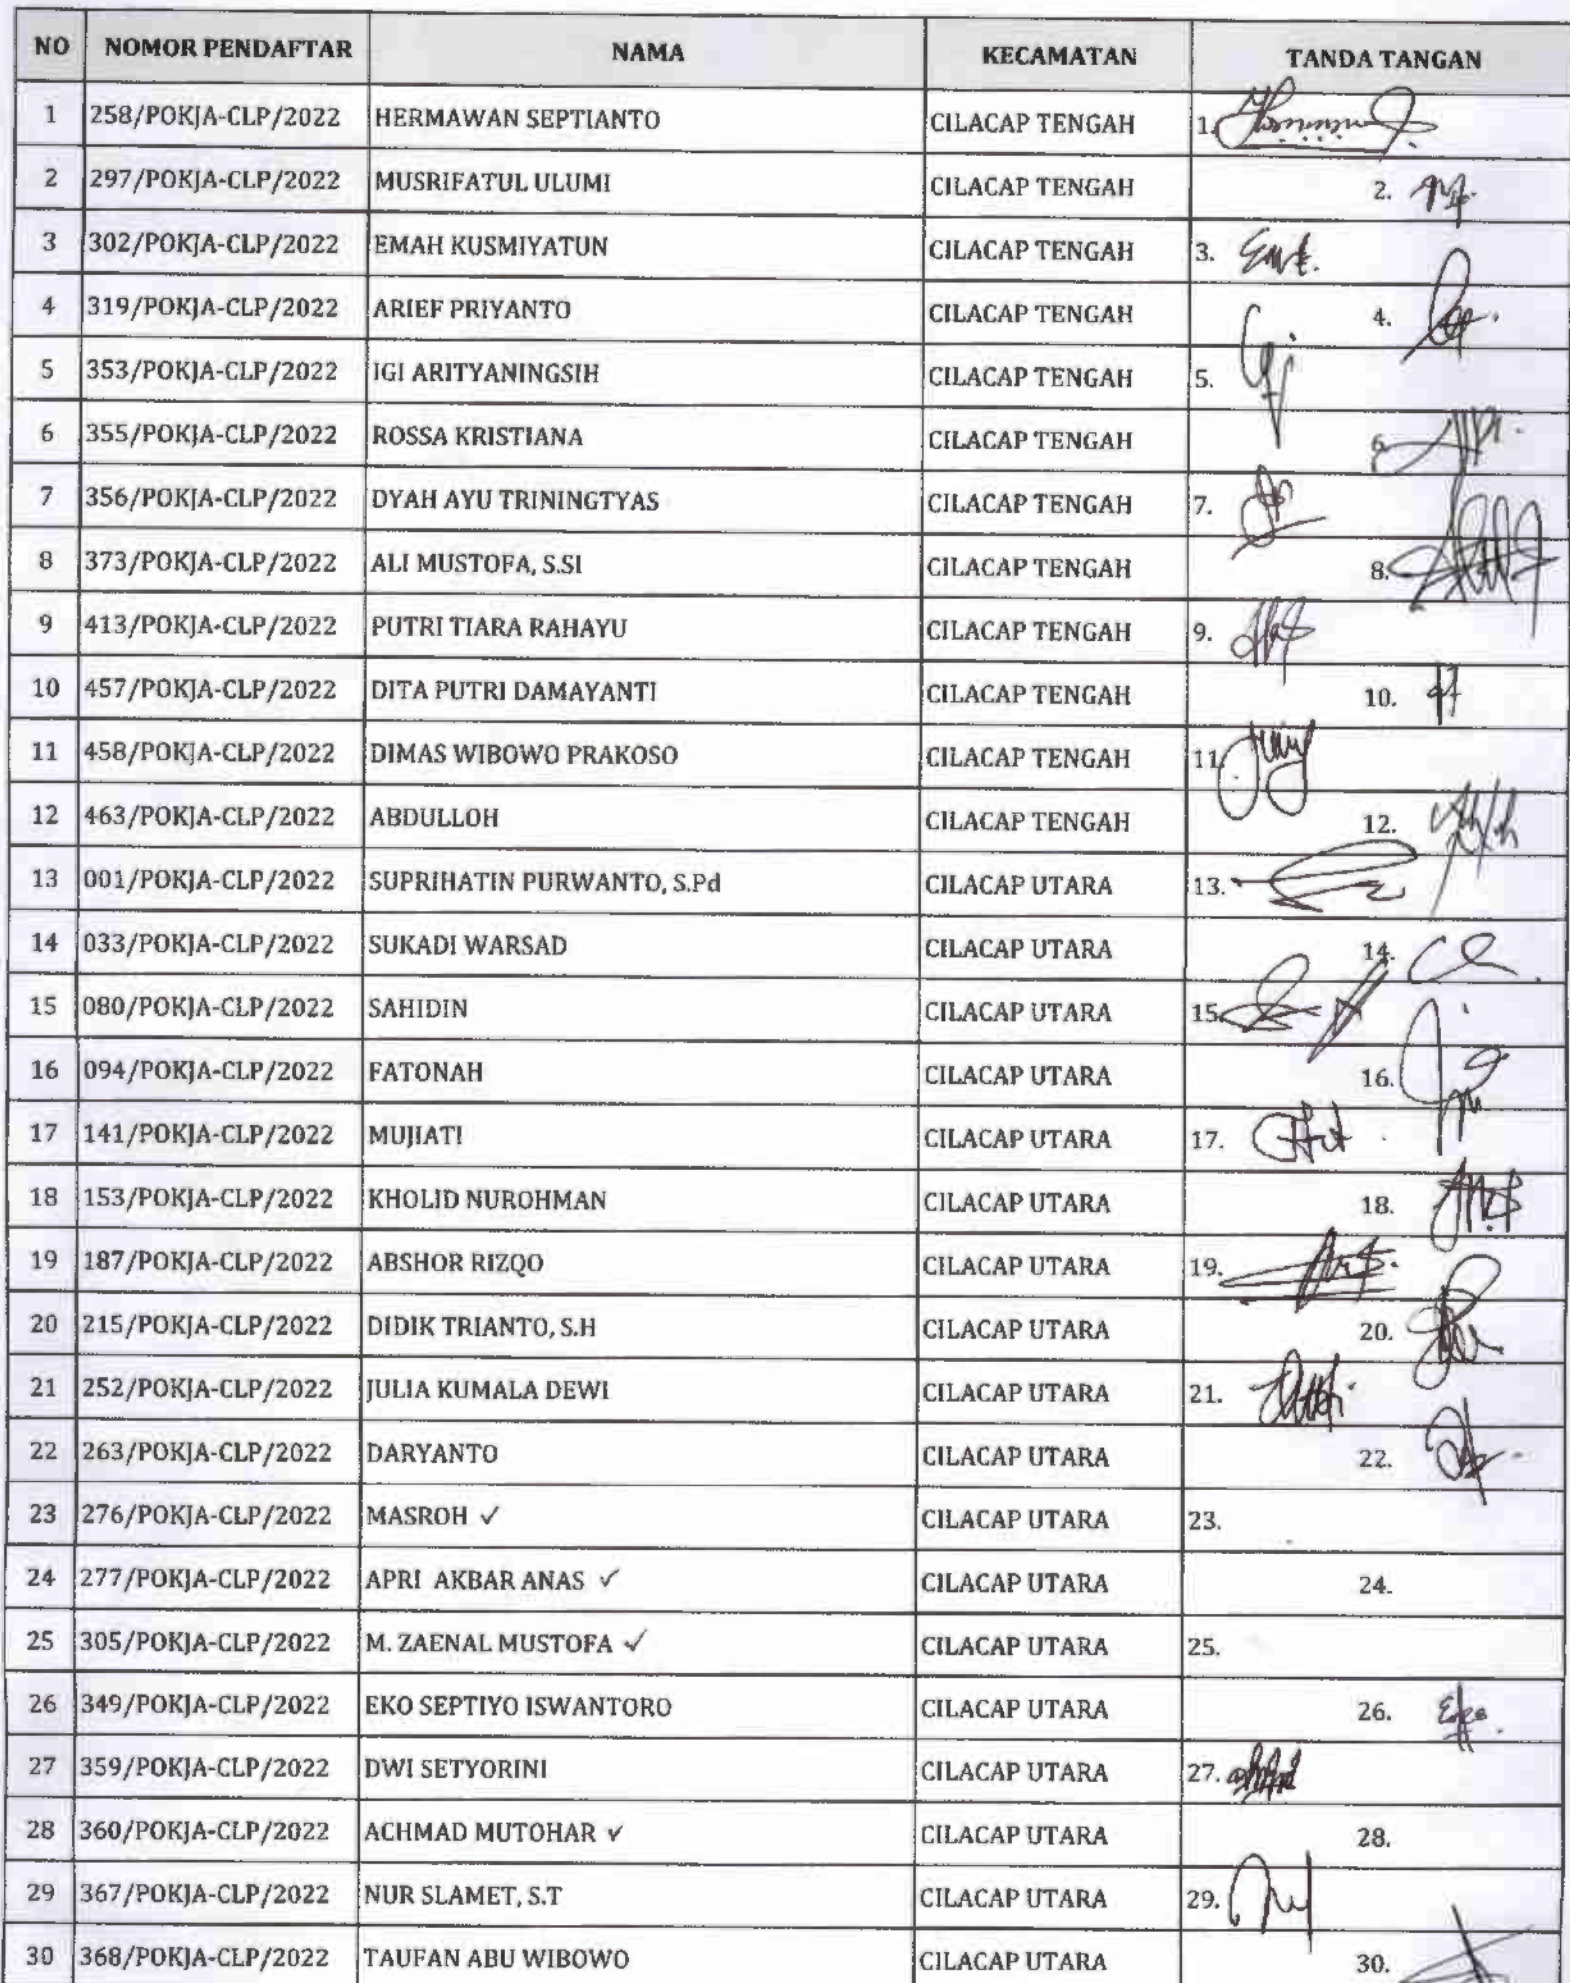 NO NOMOR PENDAFTAR NAMA KECAMATAN TANDA TANGAN
1 258/POKJA-CLP/2022 HERMAWAN SEPTIANTO CILACAP TENGAH 1.
2 297/POKJA-CLP/2022 MUSRIFATUL ULUMI CILACAP TENGAH 2.
3 302/POKJA-CLP/2022 EMAH KUSMIYATUN CILACAP TENGAH 3.
4 319/POKJA-CLP/2022 ARIEF PRIYANTO CILACAP TENGAH 4.
5 353/POKJA-CLP/2022 IGI ARITYANINGSIH CILACAP TENGAH 5.
6 355/POKJA-CLP/2022 ROSSA KRISTIANA CILACAP TENGAH 6.
7 356/POKJA-CLP/2022 DYAH AYU TRININGTYAS CILACAP TENGAH 7.
8 373/POKJA-CLP/2022 ALI MUSTOFA, S.SI CILACAP TENGAH 8.
9 413/POKJA-CLP/2022 PUTRI TIARA RAHAYU CILACAP TENGAH 9.
10 457/POKJA-CLP/2022 DITA PUTRI DAMAYANTI CILACAP TENGAH 10.
11 458/POKJA-CLP/2022 DIMAS WIBOWO PRAKOSO CILACAP TENGAH 11.
12 463/POKJA-CLP/2022 ABDULLOH CILACAP TENGAH 12.
13 001/POKJA-CLP/2022 SUPRIHATIN PURWANTO, S.Pd CILACAP UTARA 13.
14 033/POKJA-CLP/2022 SUKADI WARSAD CILACAP UTARA 14.
15 080/POKJA-CLP/2022 SAHIDIN CILACAP UTARA 15.
16 094/POKJA-CLP/2022 FATONAH CILACAP UTARA 16.
17 141/POKJA-CLP/2022 MUJIATI CILACAP UTARA 17.
18 153/POKJA-CLP/2022 KHOLID NUROHMAN CILACAP UTARA 18.
19 187/POKJA-CLP/2022 ABSHOR RIZQO CILACAP UTARA 19.
20 215/POKJA-CLP/2022 DIDIK TRIANTO, S.H CILACAP UTARA 20.
21 252/POKJA-CLP/2022 JULIA KUMALA DEWI CILACAP UTARA 21.
22 263/POKJA-CLP/2022 DARYANTO CILACAP UTARA 22.
23 276/POKJA-CLP/2022 MASROH ✓ CILACAP UTARA 23.
24 277/POKJA-CLP/2022 APRI AKBAR ANAS ✓ CILACAP UTARA 24.
25 305/POKJA-CLP/2022 M. ZAENAL MUSTOFA ✓ CILACAP UTARA 25.
26 349/POKJA-CLP/2022 EKO SEPTIYO ISWANTORO CILACAP UTARA 26.
27 359/POKJA-CLP/2022 DWI SETYORINI CILACAP UTARA 27.
28 360/POKJA-CLP/2022 ACHMAD MUTOHAR ✓ CILACAP UTARA 28.
29 367/POKJA-CLP/2022 NUR SLAMET, S.T CILACAP UTARA 29.
30 368/POKJA-CLP/2022 TAUFAN ABU WIBOWO CILACAP UTARA 30.